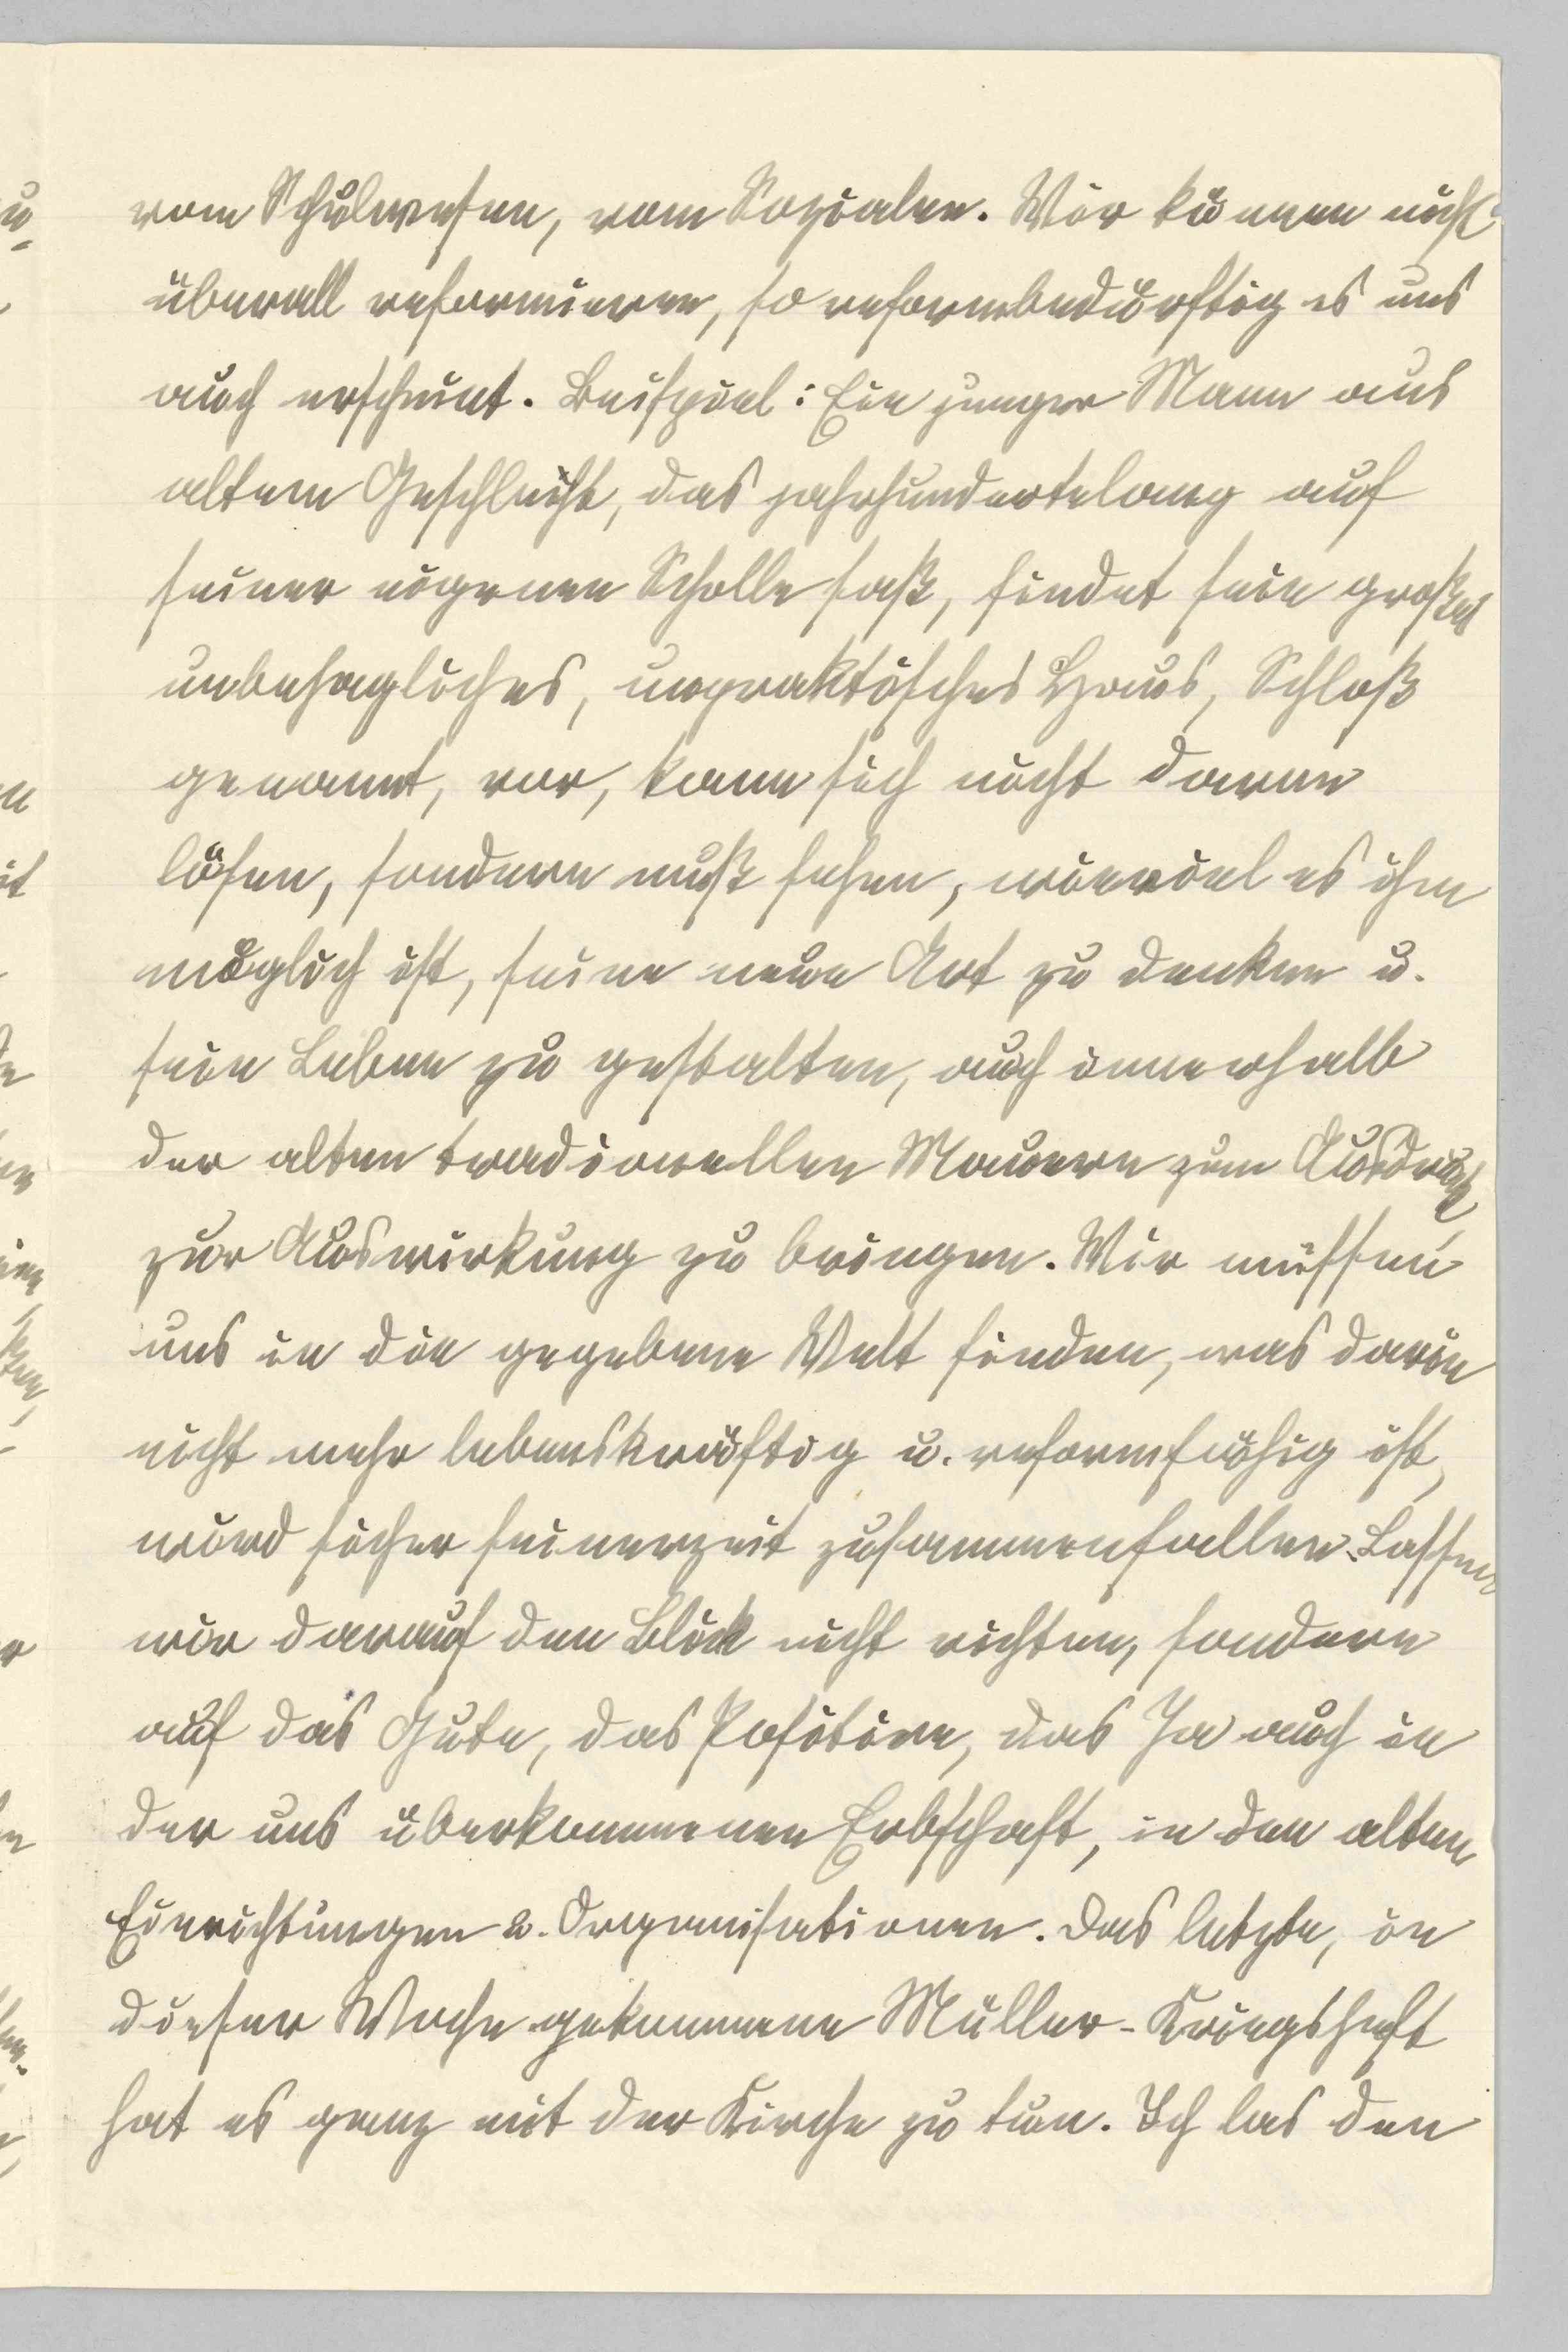 vom Schulwesen, vom Sozialen. Wir können nicht
überall reformieren, so reformbedürftig es uns
auch erscheint. Beispiel: Ein junger Mann aus
altem Geschlecht, das jahrhundertelang auf
seiner eigenen Scholle saß, findet sein großes
unbehagliches, unpraktisches Haus, Schloß
genannt, vor, kann sich nicht davon
lösen, sondern muß sehen, wieviel es ihm
möglich ist, seine neue Art zu denken u.
sein Leben zu gestalten, auch innerhalb
der alten tradionellen Mauern zum Ausdruck
zur Auswirkung zu bringen. Wir müssen
uns in die gegebene Welt finden, was darin
nicht mehr lebenskräftig u. reformfähig ist,
wird sicher seinerzeit zusammenfallen. Lassen
wir darauf den Blick nicht richten, sondern
auf das Gute, das Positive, das Ja auch in
der uns überkommenen Erbschaft, in den alten
Einrichtungen u. Organisationen. Das letzte, in
dieser Woche gekommene Müller-Kriegsheft
hat es ganz mit der Kirche zu tun. Ich las den